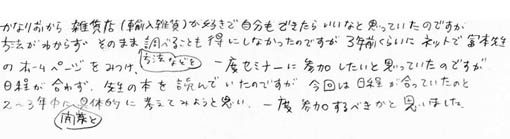 かなり前から雑貨店(輸入雑貨)が好きで自分もできたらいいなと思っていたのですが
方法がわからずそのまま調べることも得にしなかったのですが3年前くらいにネットで富本先生
のホームページをみつけ、方法などを 一度セミナーに参加したいと思っていたのですが
日程が合わず、先生の本を読んでいたのですが 今回は日程が合っていたのと
2~3年中に具体的に考えてみようと思い、一度参加するべきかと思いました。
開業を